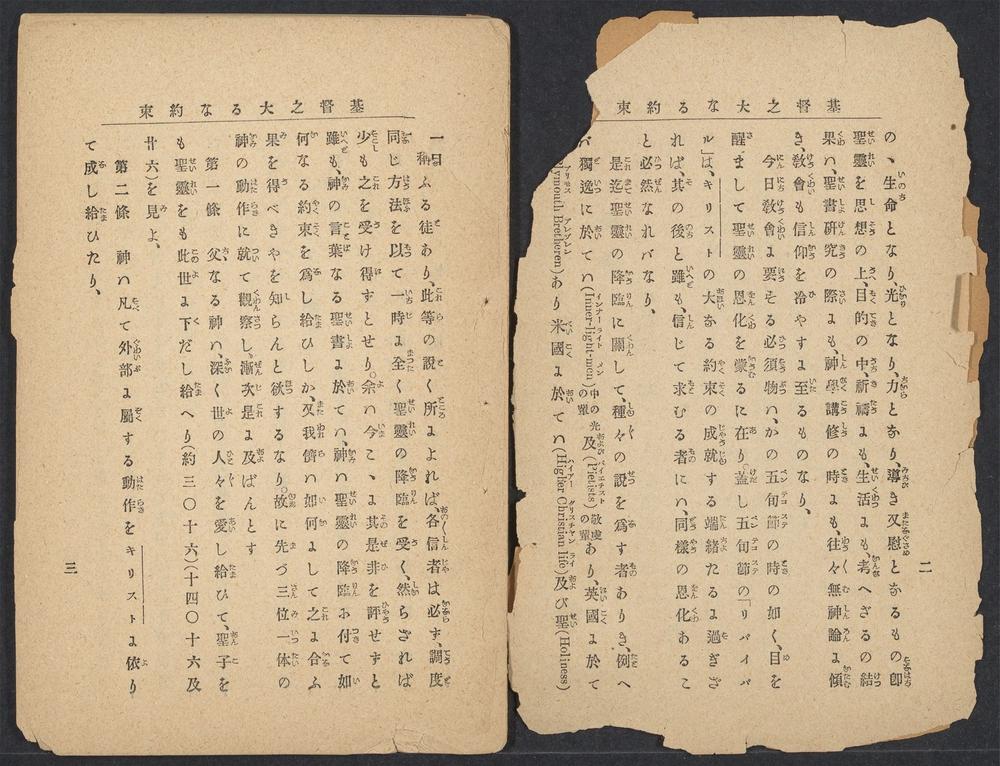 基督之大なる約束
の、生命となり光となり、力となり、導き又慰となるもの卽
聖靈を思想の上、目的の中、祈禱にも、生活にも、考へざるの結
果ハ、聖書研究の際にも、神學講修の時にも往々無神論に傾
き、敎會も信仰を冷やすに至るものなり、
今日敎會に要する必須物ハ、かの五旬節の時の如く、目を
醒まして聖靈の恩化を蒙るに在り、蓋し五旬節の「リバイバ
ル」は、キリストの大なる約束の成就する端緒たるに過ぎざ
れば、其の後と雖も、信じて求むる者にハ、同樣の恩化あるこ
と必然なれバなり、
是迄聖靈の降臨に關して、種々の説を爲す者ありき、例へ
バ獨逸に於てハ(Inner-light-men)中の光の輩及(Pielists)敬虔の輩あり、英國に於て
lymouth Bretheren)あり米國に於てハ(Higher Christian life)及び聖(Holiness)
二
基督之大なる約束
稱ふる徒あり、此等の説く所によれば、各信者は必ず、調度
同じ方法を以て一時に全く聖靈の降臨を受く、然らざれば
少も之を受け得ずとせり。余ハ今こゝに其是非を評せずと
雖も、神の言葉なる聖書に於てハ、神ハ聖靈の降臨に付て如
何なる約束を爲し給ひしか、又我儕ハ如何にして之に合ふ
果を得べきやを知らんと欲するなり。故に先づ三位一体の
神の動作に就て觀察し、漸次是に及ばんとす
第一條　父なる神ハ、深く世の人々を愛し給ひて、聖子を
も聖靈をも此世に下だし給へり(約三〇十六)(十四〇十六及
廿六)を見よ、
第二條　神ハ凡て外部に屬する動作をキリストに依り
て成し給ひたり、
三